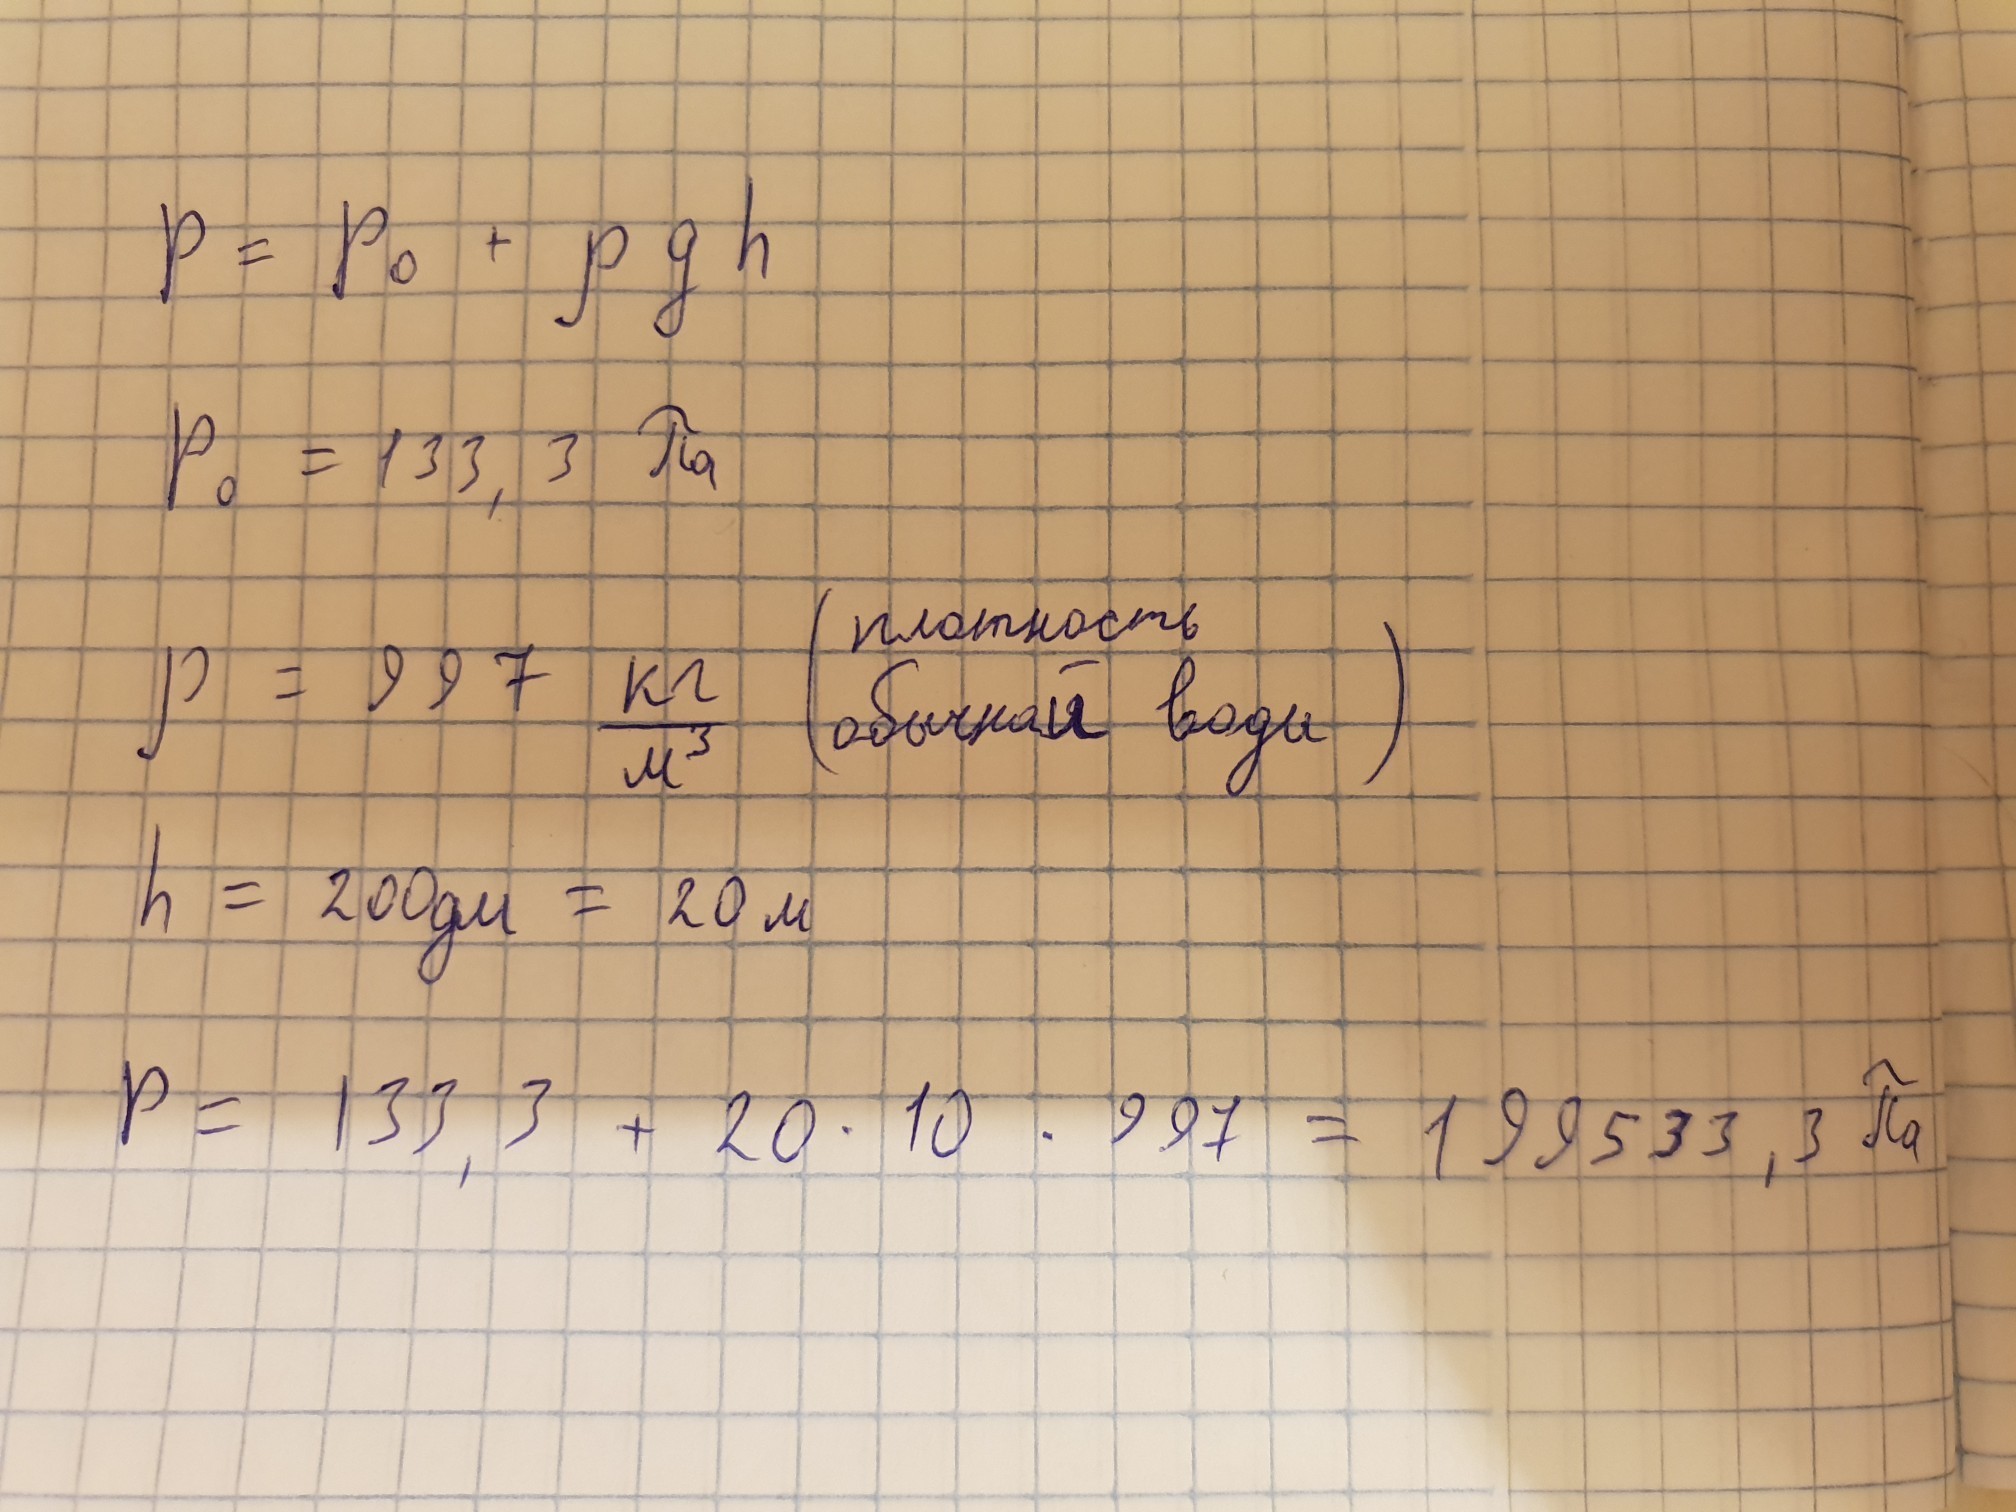 p = p₀ + ρ g h
p₀ = 133,3 Па
ρ = 997 кг/м³ (плотность обычной воды)
h = 200дм = 20м
p = 133,3 + 20 · 10 · 997 = 199533,3 Па